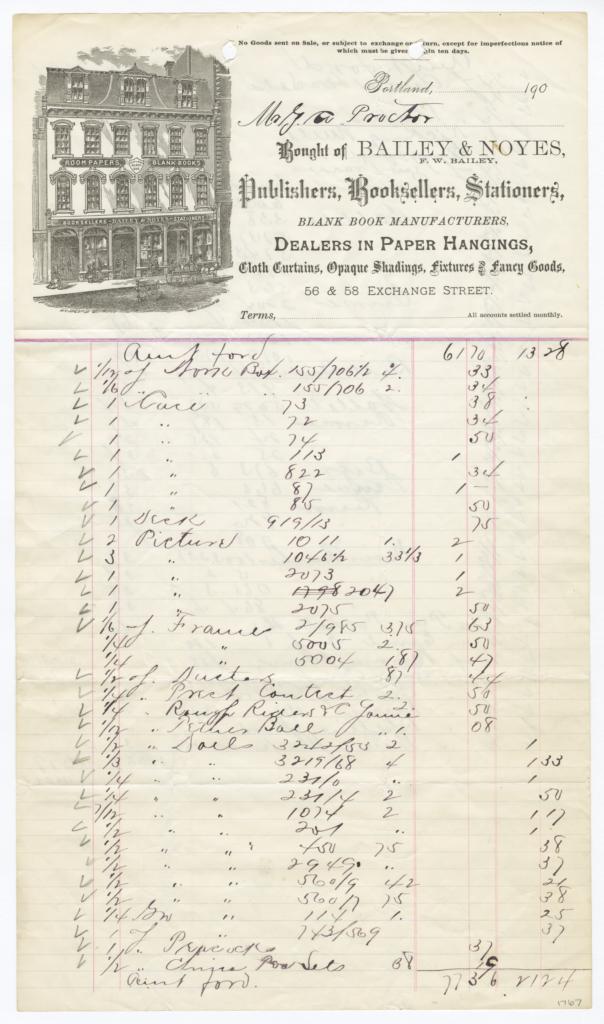 No Goods sent on Sale, or subject to exchange or return, except for imperfections notice of
which must be given within ten days.
Portland, 190
Mr J. Proctor
Bought of BAILEY & NOYES,
F. W. BAILEY,
Publishers, Booksellers, Stationers,
BLANK BOOK MANUFACTURERS,
DEALERS IN PAPER HANGINGS,
Cloth Curtains, Opaque Shadings, Fixtures & Fancy Goods,
56 & 58 EXCHANGE STREET.
Terms, All accounts settled monthly.
ROOM PAPERS. BLANK BOOKS
BOOKSELLERS - BAILEY & NOYES - STATIONERS
Amt ford 61 70 13 28
1/12 Box 155/706 1/2 4. 33
1/6 " " 155/706 2. 34
1 73 38
1 " 72 34
1 " 74 50
1 " 113 1
1 " 822 34
1 " 87 1 —
1 " 85 50
1 Desk 919/13 75
2 Picture 1011 1. 2
3 " 1046 1/2 33 1/3 1
1 " 2073 1
1 " 1798 2047 2
1 " 2075 50
1/6 Frame 2/985 3.75 63
1/4 " 5005 2. 50
1/4 " 5004 1.87 47
1/2 Dusters 87 44
1/4 " Prest Contest 2. 50
1/4 " Rough Riders Game 2. 50
1/12 " Tether Ball " 1. 08
1/2 " Dolls 3242/50 2 1
1/3 " " 3219/68 4 1 33
1/4 " " 231/0 " 1
1/4 " " 231/4 2 50
7/12 " " 1074 2 1 17
1/2 " " 201 " 1
1/2 " " 450 75 38
1/2 " " 2949 " 37
1/2 " " 560/9 42 21
1/2 " " 560/7 75 38
1/4 " 114 1. 25
1 " 743/569 37
1 " Peacocks 37
1/2 " Sets 38 19
Amt ford. 77 36 21 24
1767